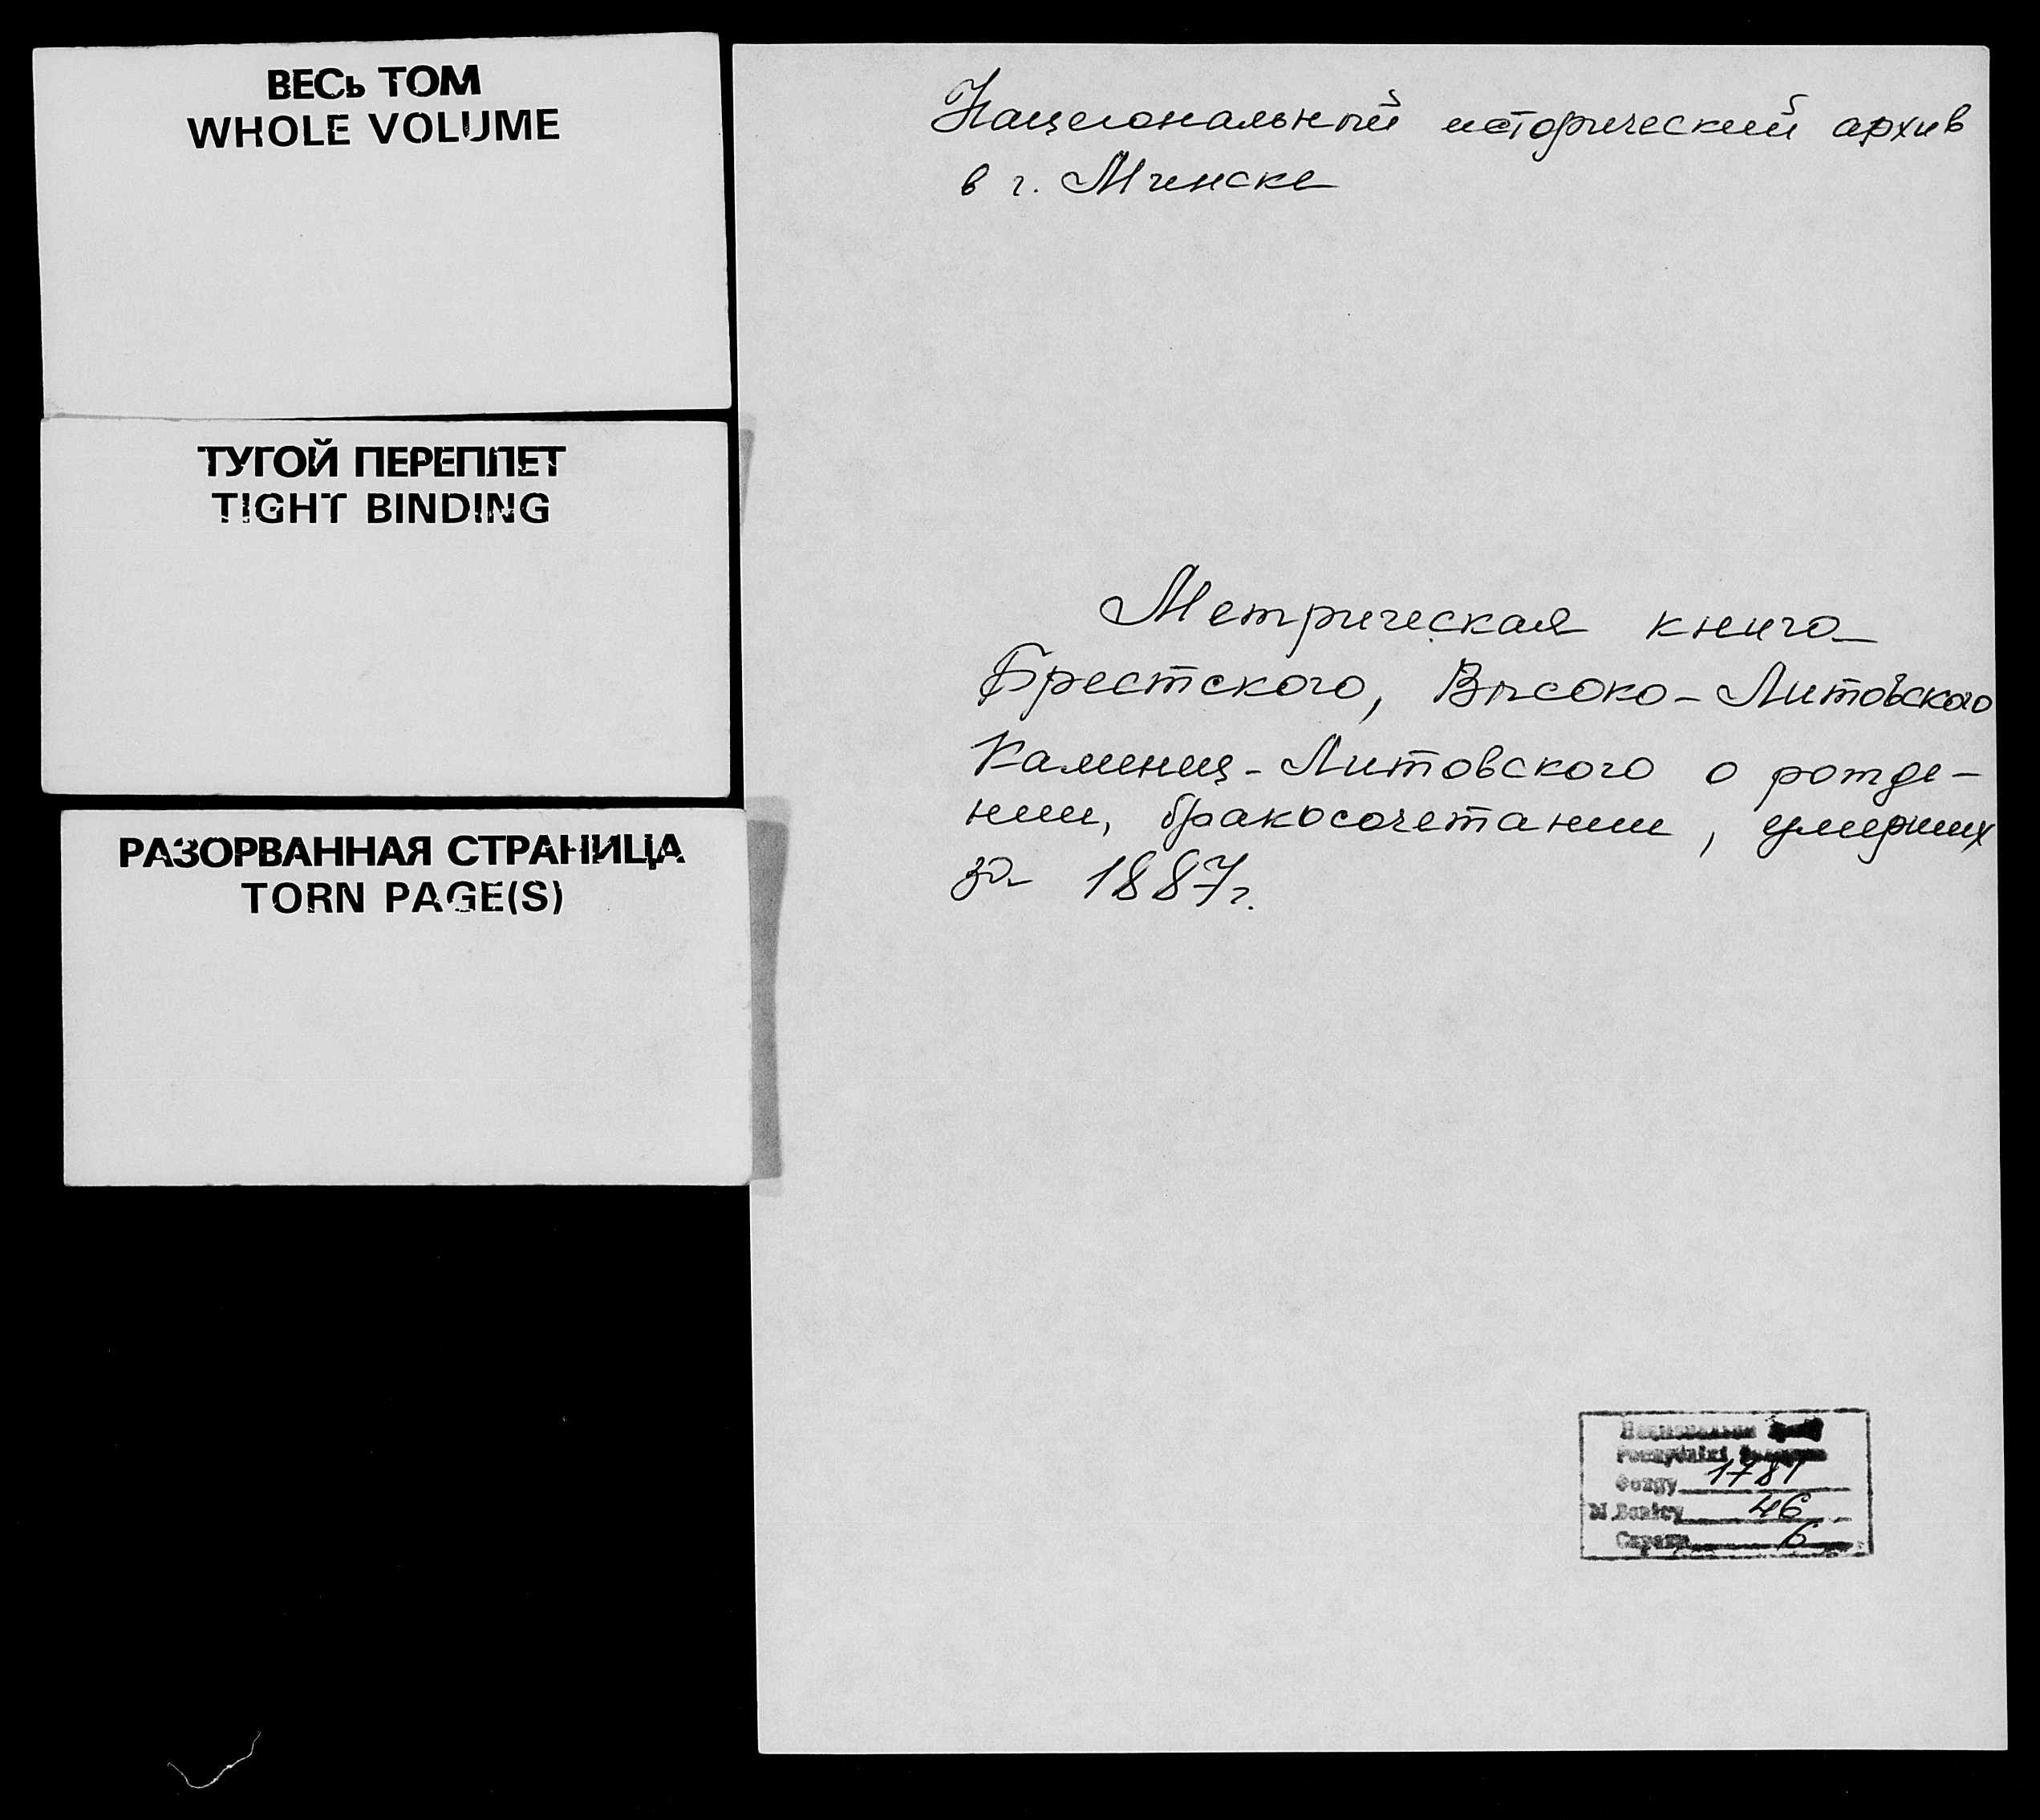 ВЕСЬ ТОМ
WHOLE VOLUME
ТУГОЙ ПЕРЕПЛЕТ
TIGHT BINDING
РАЗОРВАННАЯ СТРАНИЦА
TORN PAGE(S)
Национальный исторический архив
в г. Минске
Метрическая книга
Брестского, Высоко-Литовского
Каменец-Литовского о рожде-
нии, бракосочетании, умерших
за 1887г.
Фонду 1781
№ Вопісу 46
Справа 6